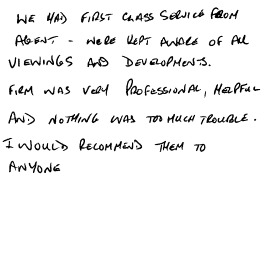 WE HAD FIRST CLASS SERVICE FROM
AGENT - WERE KEPT AWARE OF ALL
VIEWINGS AND DEVELOPMENTS.
FIRM WAS VERY PROFESSIONAL, HELPFUL
AND NOTHING WAS TOO MUCH TROUBLE.
I WOULD RECOMMEND THEM TO
ANYONE